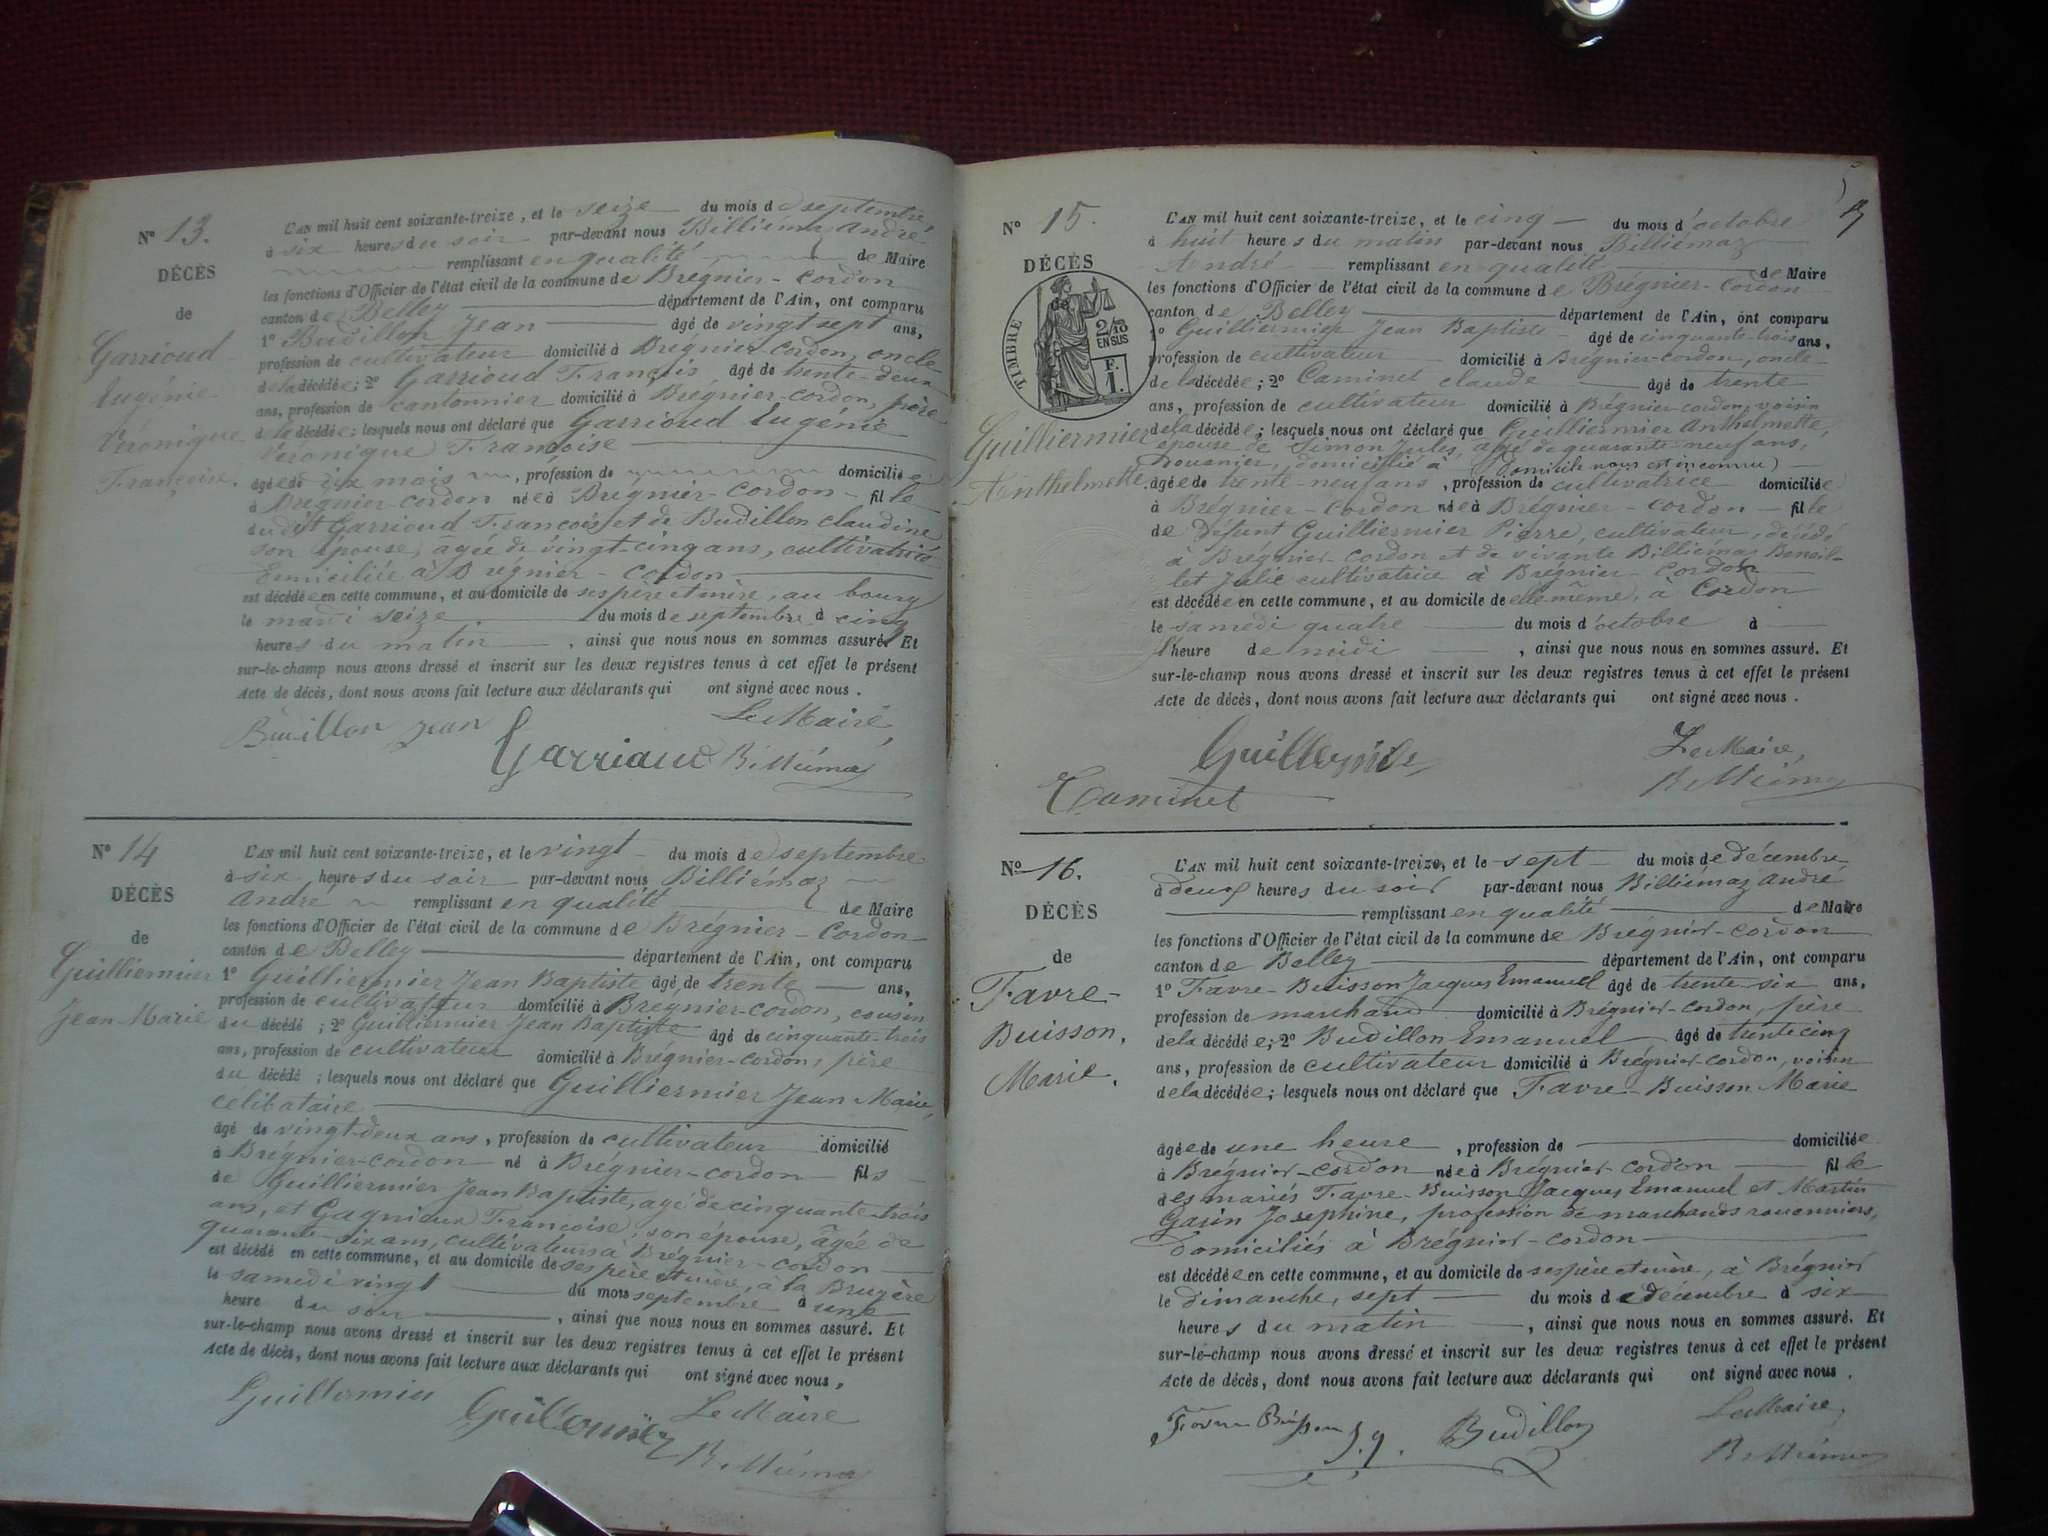 N° 13.
DÉCÈS
de
Garrioud
Eugénie
Véronique
Françoise.
L'AN mil huit cent soixante-treize, et le seize du mois de septembre
à six heures du soir par-devant nous Billiémaz André
remplissant en qualité de Maire
les fonctions d'Officier de l'état civil de la commune de Brégnier-Cordon
canton de Belley département de l'Ain, ont comparu
1° Budillon Jean âgé de vingt sept ans,
profession de cultivateur domicilié à Brégnier-cordon, oncle
de la décédée; 2° Garrioud François, âgé de trente-deux
ans, profession de cantonnier domicilié à Brégnier-cordon, père
de la décédée; lesquels nous ont déclaré que Garrioud Eugénie
Véronique Françoise
âgée de dix mois, profession de domiciliée
à Brégnier-cordon née à Brégnier-Cordon fille
du dit Garrioud François et de Budillon claudine
son épouse, âgée de vingt-cinq ans, cultivatrice
domiciliée à Brégnier-Cordon
est décédée en cette commune, et au domicile de ses père et mère, au bourg
le mardi seize du mois de septembre à cinq
heures du matin, ainsi que nous nous en sommes assuré. Et
sur-le-champ nous avons dressé et inscrit sur les deux registres tenus à cet effet le présent
Acte de décès, dont nous avons fait lecture aux déclarants qui ont signé avec nous.
Budillon Jean Le Maire,
Garrioud Billiémaz
N° 14
DÉCÈS
de
Guilliermier
Jean-Marie
L'AN mil huit cent soixante-treize, et le vingt du mois de septembre
à six heures du soir par-devant nous Billiémaz
André remplissant en qualité de Maire
les fonctions d'Officier de l'état civil de la commune de Brégnier-Cordon
canton de Belley département de l'Ain, ont comparu
1° Guilliermier Jean Baptiste âgé de trente ans,
profession de cultivateur domicilié à Brégnier-cordon, cousin
du décédé; 2° Guilliermier Jean Baptiste âgé de cinquante-trois
ans, profession de cultivateur domicilié à Brégnier-cordon, père
du décédé; lesquels nous ont déclaré que Guilliermier Jean Marie,
célibataire
âgé de vingt-deux ans, profession de cultivateur domicilié
à Brégnier-cordon né à Brégnier-cordon fils
de Guilliermier Jean Baptiste, agé de cinquante-trois
ans, et Gagnieux Françoise, son épouse, âgée de
quarante-six ans, cultivateurs à Brégnier-cordon
est décédé en cette commune, et au domicile de ses père et mère, à la Bruyère
le samedi vingt du mois septembre à une
heure du soir, ainsi que nous nous en sommes assuré. Et
sur-le-champ nous avons dressé et inscrit sur les deux registres tenus à cet effet le présent
Acte de décès, dont nous avons fait lecture aux déclarants qui ont signé avec nous,
Guillermier Le Maire
Billiémaz
N° 15.
DÉCÈS
de
TIMBRE
2/10
EN SUS
F.
1.
Guilliermier
Anthelmette.
L'AN mil huit cent soixante-treize, et le cinq du mois d'octobre
à huit heures du matin par-devant nous Billiémaz
André remplissant en qualité de Maire
les fonctions d'Officier de l'état civil de la commune de Brégnier-Cordon
canton de Belley département de l'Ain, ont comparu
1° Guilliermier Jean Baptiste âgé de cinquante-trois ans,
profession de cultivateur domicilié à Brégnier-cordon, oncle
de la décédée; 2° Caminet claude âgé de trente
ans, profession de cultivateur domicilié à Brégnier-cordon, voisin
de la décédée; lesquels nous ont déclaré que Guilliermier Anthelmette,
épouse de Simon Jules, âgé de quarante-neuf ans,
douanier, domicilié à (domicile nous est inconnu)
âgée de trente-neuf ans, profession de cultivatrice domiciliée
à Brégnier-Cordon née à Brégnier-Cordon fille
de Défunt Guilliermier Pierre, cultivateur, décédé
à Brégnier-Cordon et de vivante Billiémaz Benoit-
tet Julie cultivatrice à Brégnier-Cordon
est décédée en cette commune, et au domicile de elle même, à Cordon
le samedi quatre du mois d'octobre à
l'heure de midi, ainsi que nous nous en sommes assuré. Et
sur-le-champ nous avons dressé et inscrit sur les deux registres tenus à cet effet le présent
Acte de décès, dont nous avons fait lecture aux déclarants qui ont signé avec nous.
Le Maire,
Caminet Billiémaz
N° 16.
DÉCÈS
de
Favre-
Buisson,
Marie.
L'AN mil huit cent soixante-treize, et le sept du mois de décembre
à deux heures du soir par-devant nous Billiémaz André
remplissant en qualité de Maire
les fonctions d'Officier de l'état civil de la commune de Brégnier-cordon
canton de Belley département de l'Ain, ont comparu
1° Favre-Buisson Jacques Emanuel âgé de trente six ans,
profession de marchand domicilié à Brégnier-cordon, père
de la décédée; 2° Budillon Emanuel âgé de trente cinq
ans, profession de cultivateur domicilié à Brégnier-cordon, voisin
de la décédée; lesquels nous ont déclaré que Favre-Buisson Marie
âgée de une heure, profession de domiciliée
à Brégnier-cordon née à Brégnier-cordon fille
des mariés Favre-Buisson Jacques Emanuel et Martin
Garin Josephine, profession de marchands rouenniers,
domiciliés à Brégnier-cordon
est décédée en cette commune, et au domicile de ses père et mère, à Brégnier
le dimanche, sept du mois de décembre à six
heures du matin, ainsi que nous nous en sommes assuré. Et
sur-le-champ nous avons dressé et inscrit sur les deux registres tenus à cet effet le présent
Acte de décès, dont nous avons fait lecture aux déclarants qui ont signé avec nous.
Favre Buisson Budillon Le Maire,
Billiémaz